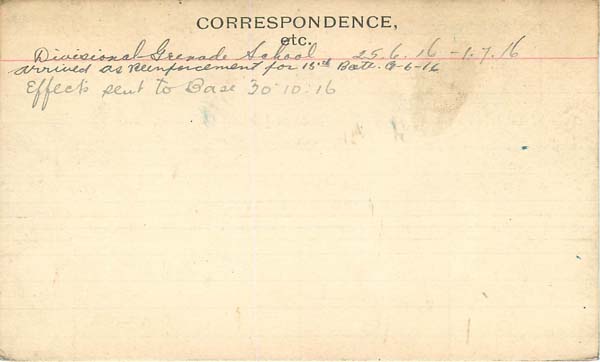 CORRESPONDENCE,
etc.
Divisional Grenade School 25.6.16 - 1.7.16
arrived as Reinforcement for 15th Batt. 9-6-16
Effects sent to Base 30.10.16